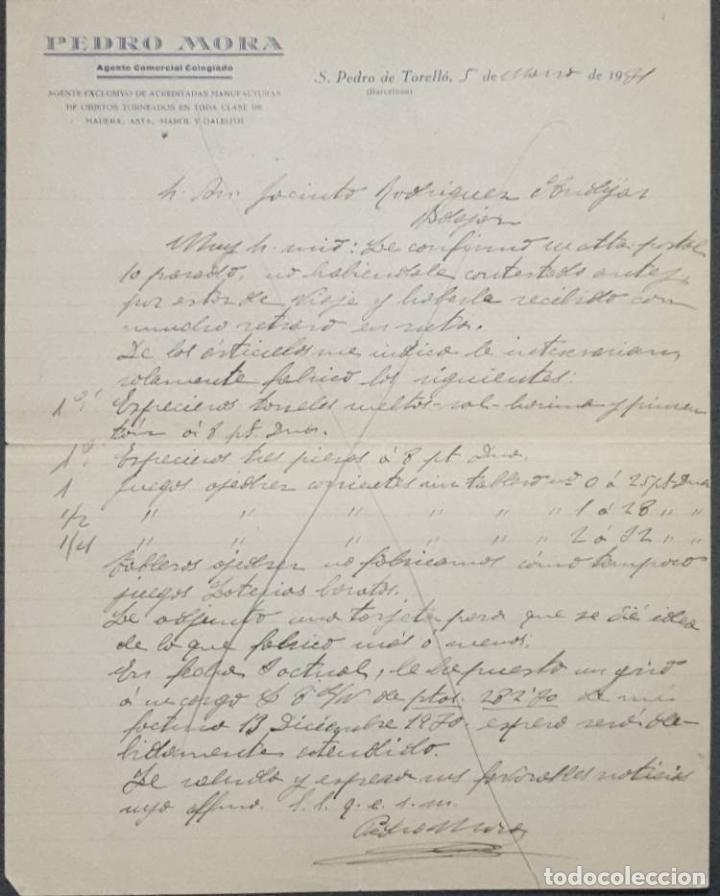 PEDRO MORA
Agente Comercial Colegiado
AGENTE EXCLUSIVO DE ACREDITADAS MANUFACTURAS
DE OBJETOS TORNEADOS EN TODA CLASE DE
MADERA, ASTA, MARFIL Y GALALITH
S. Pedro de Torelló, 5 de de 19
(Barcelona)
Jacinto Rodriguez
Muy mio: Le confirmo postal
no habiendola contestado antes
por estar de viaje y haberla recibido con
mucho retraso en
De los articulos me indica le interesarian
solamente fabrico los siguientes:
Especieros toneles sal-harina y pimen
ton á 8 pt. Dna.
1 Especieros tres piezas á 8 pt Dna.
1 Juegos ajedrez corrientes sin tablero nº 0 á 25 pt. Dna
1/2 " " " " " " 1 á 28 " "
" " " " " " 2 á 32 " "
Tableros ajedrez no fabricamos como tampoco
juegos Loterias baratos.
Le adjunto una tarjeta para que se dé idea
de lo que fabrico más ó menos.
En fecha actual, le he puesto un giro
á su cargo de ptas. 282'70 de mi
factura 13 Diciembre espero será de-
bidamente atendido.
Le saluda y espera sus favorables noticias
suyo affmo. S. S. q. e. s. m.
Pedro Mora
todocoleccion.net